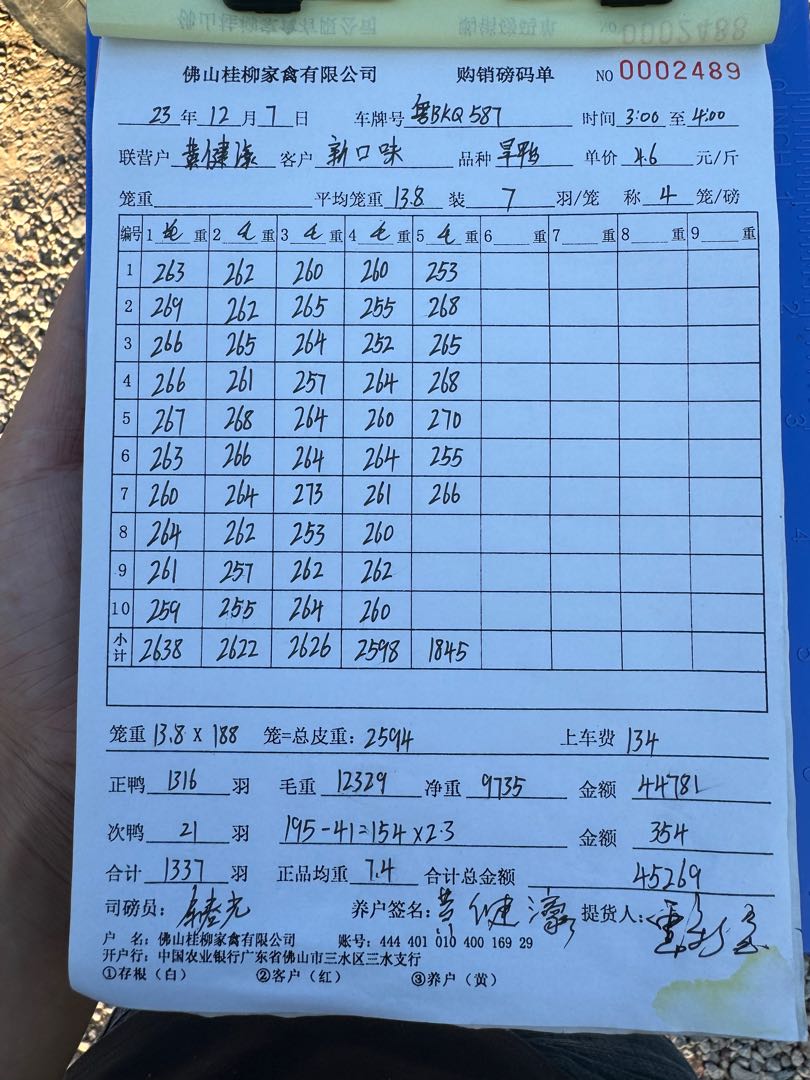 佛山桂柳家禽有限公司 购销磅码单 NO 0002489
23年12月7日 车牌号 粤BKQ587 时间 3:00 至 4:00
联营户 黄健濠 客户 新口味 品种 旱鸭 单价 4.6 元/斤
笼重 平均笼重 13.8 装 7 羽/笼 称 4 笼/磅
编号 1 毛 重 2 毛 重 3 毛 重 4 毛 重 5 毛 重 6 重 7 重 8 重 9 重
1 263 262 260 260 253
2 269 262 265 255 268
3 266 265 264 252 265
4 266 261 257 264 268
5 267 268 264 260 270
6 263 266 264 264 255
7 260 264 273 261 266
8 264 262 253 260
9 261 257 262 262
10 259 255 264 260
小计 2638 2622 2626 2598 1845
笼重 13.8 X 188 笼=总皮重: 2594 上车费 134
正鸭 1316 羽 毛重 12329 净重 9735 金额 44781
次鸭 21 羽 195-41=154×2.3 金额 354
合计 1337 羽 正品均重 7.4 合计总金额 45269
司磅员: 养户签名: 黄健濠 提货人:
户 名: 佛山桂柳家禽有限公司 账号: 444 401 010 400 169 29
开户行: 中国农业银行广东省佛山市三水区三水支行
①存根（白） ②客户（红） ③养户（黄）